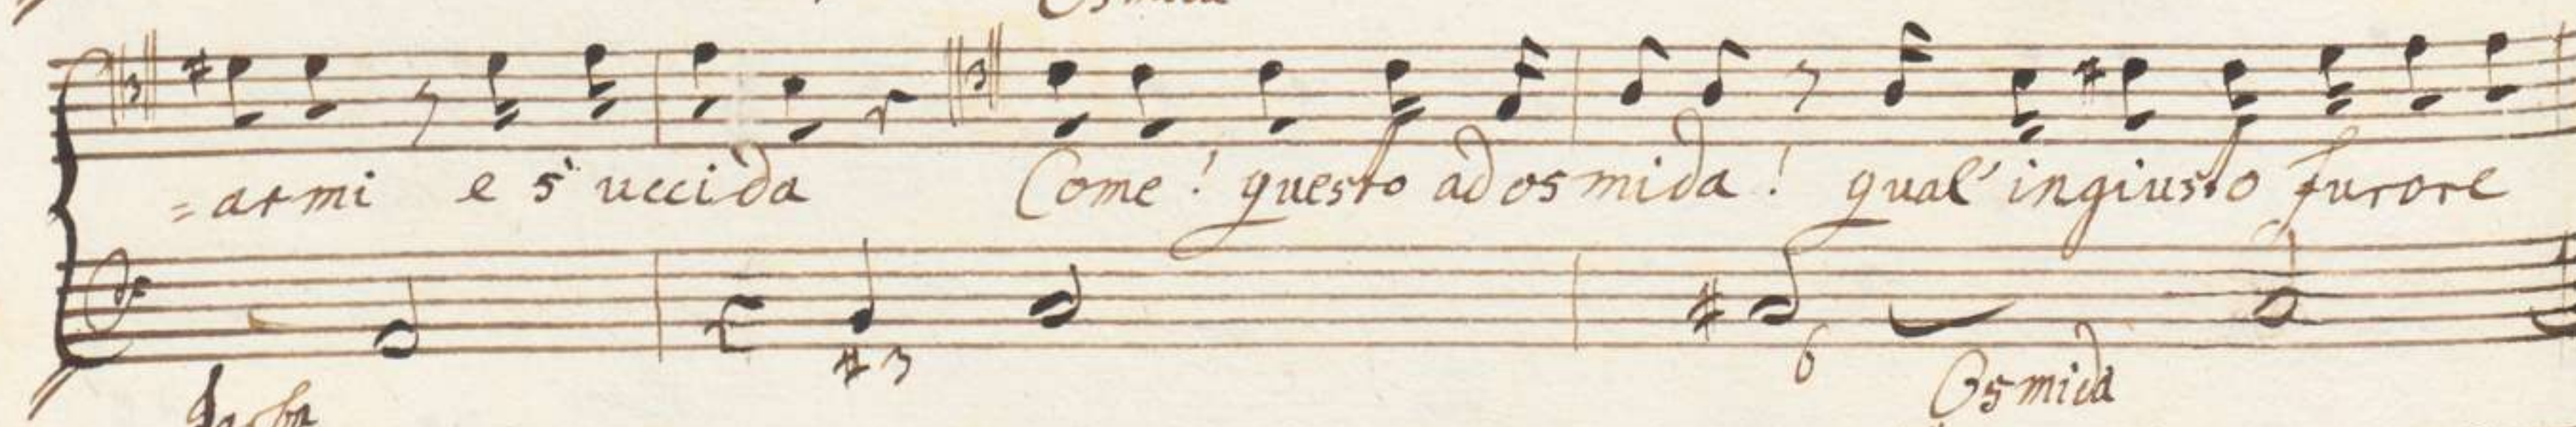 Osmida
=armi e s'uccida Come! questo ad osmida! qual' ingiusto furore
#3 6
Jarba Osmida